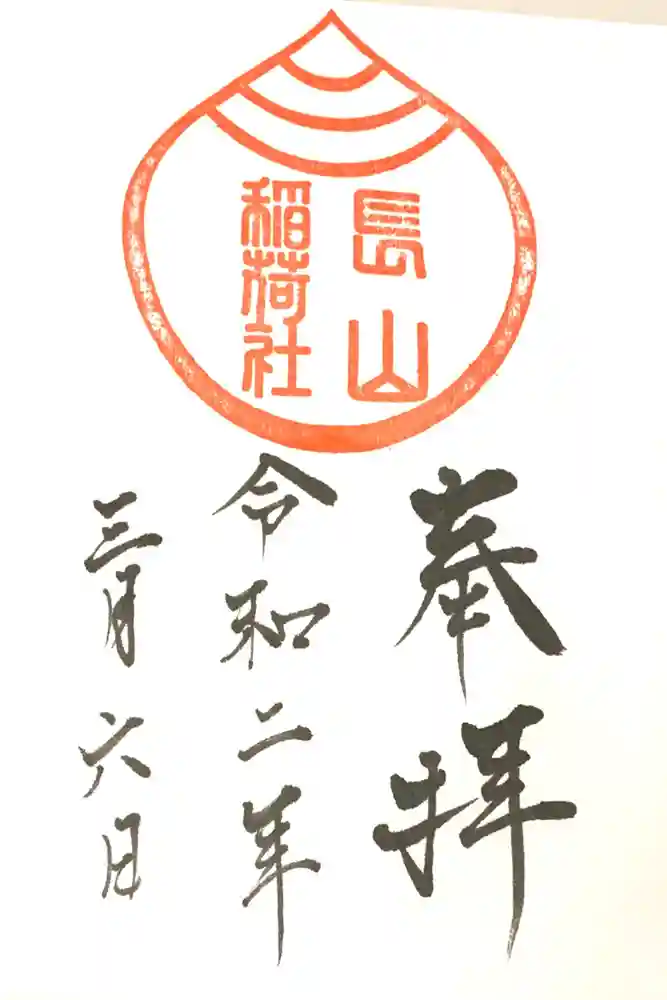 長山
稲荷社
奉拝
令和二年
三月六日